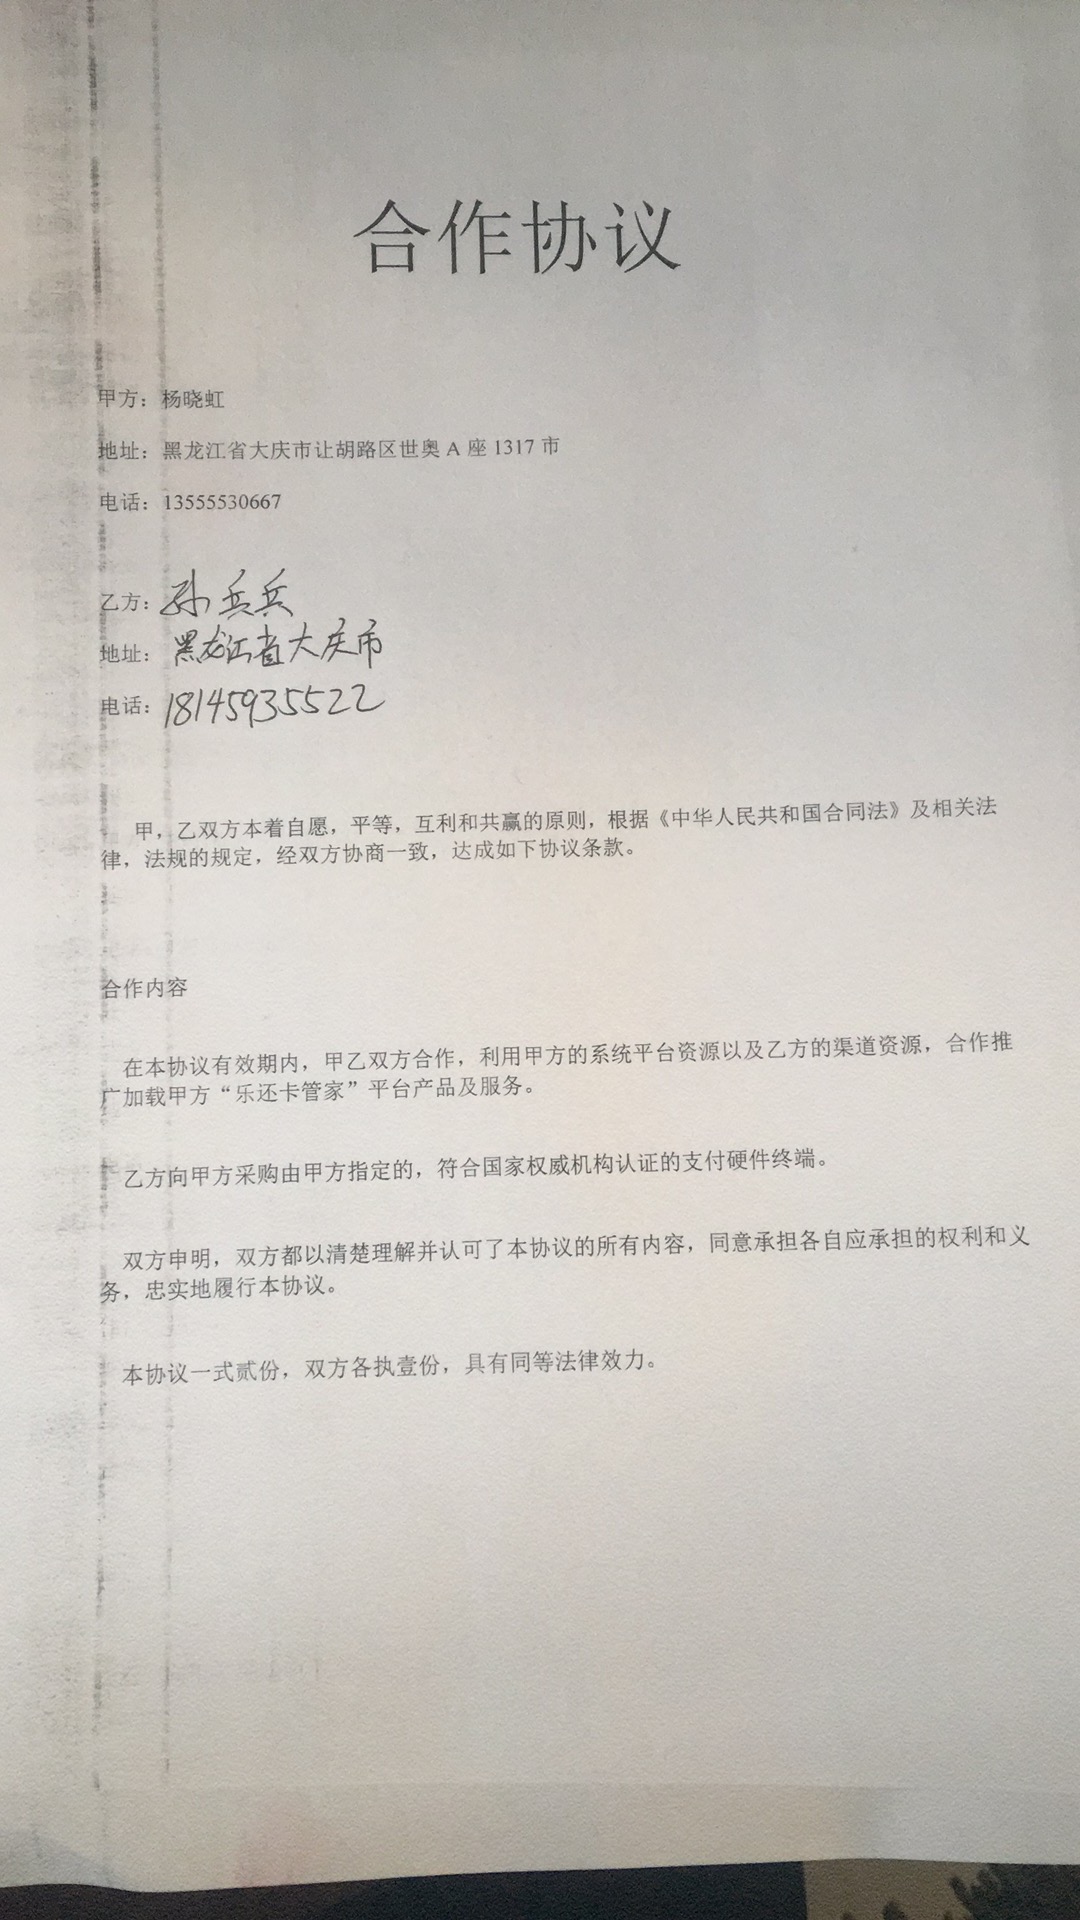 合作协议
甲方：杨晓虹
地址：黑龙江省大庆市让胡路区世奥 A 座 1317 市
电话：13555530667
乙方：孙兵兵
地址：黑龙江省大庆市
电话：18145935522
甲，乙双方本着自愿，平等，互利和共赢的原则，根据《中华人民共和国合同法》及相关法
律，法规的规定，经双方协商一致，达成如下协议条款。
合作内容
在本协议有效期内，甲乙双方合作，利用甲方的系统平台资源以及乙方的渠道资源，合作推
广加载甲方“乐还卡管家”平台产品及服务。
乙方向甲方采购由甲方指定的，符合国家权威机构认证的支付硬件终端。
双方申明，双方都以清楚理解并认可了本协议的所有内容，同意承担各自应承担的权利和义
务，忠实地履行本协议。
本协议一式贰份，双方各执壹份，具有同等法律效力。